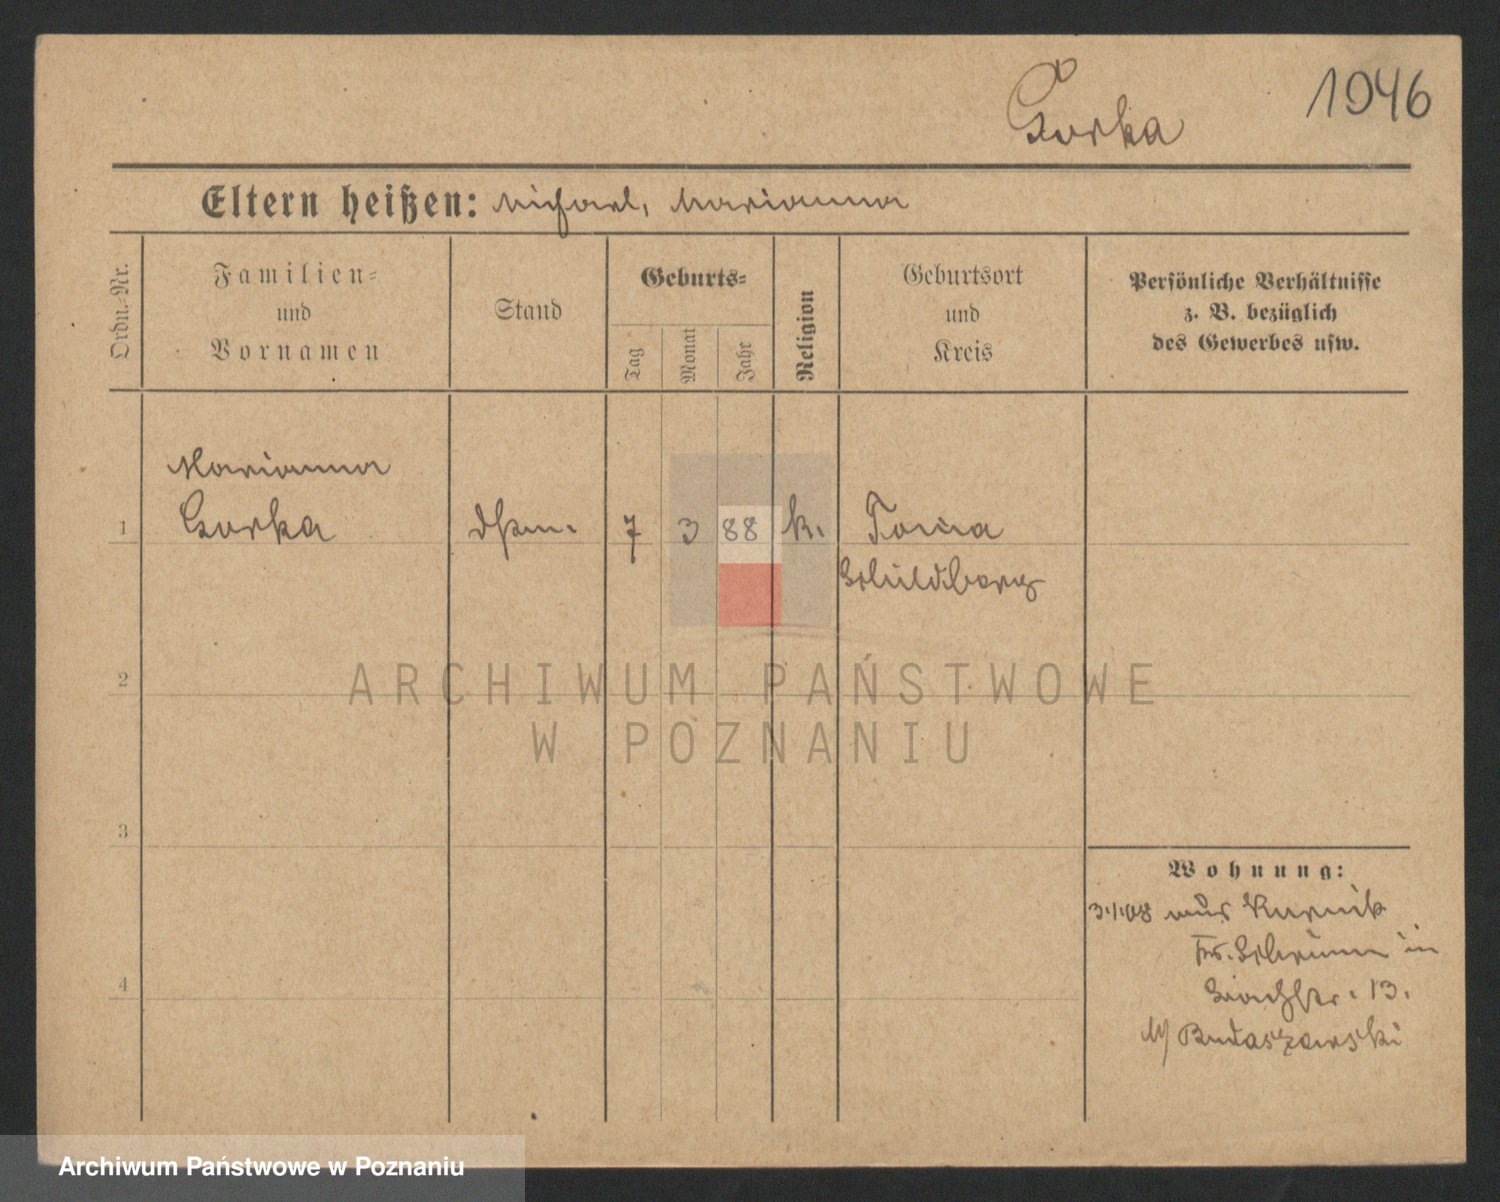 Gorka
1946
Eltern heißen: Michael, Marianna
Ordn.-Nr.
Familien-
und
Vornamen
Stand
Geburts-
Tag
Monat
Jahr
Religion
Geburtsort
und
Kreis
Persönliche Verhältnisse
z. B. bezüglich
des Gewerbes usw.
Marianna
1 Gorka 7 3 88 k.
Schildberg
2
ARCHIWUM PAŃSTWOWE
W POZNANIU
3
Wohnung:
3.1.08 aus Kurnik
Kr. Schrimm in
13.
4
Archiwum Państwowe w Poznaniu